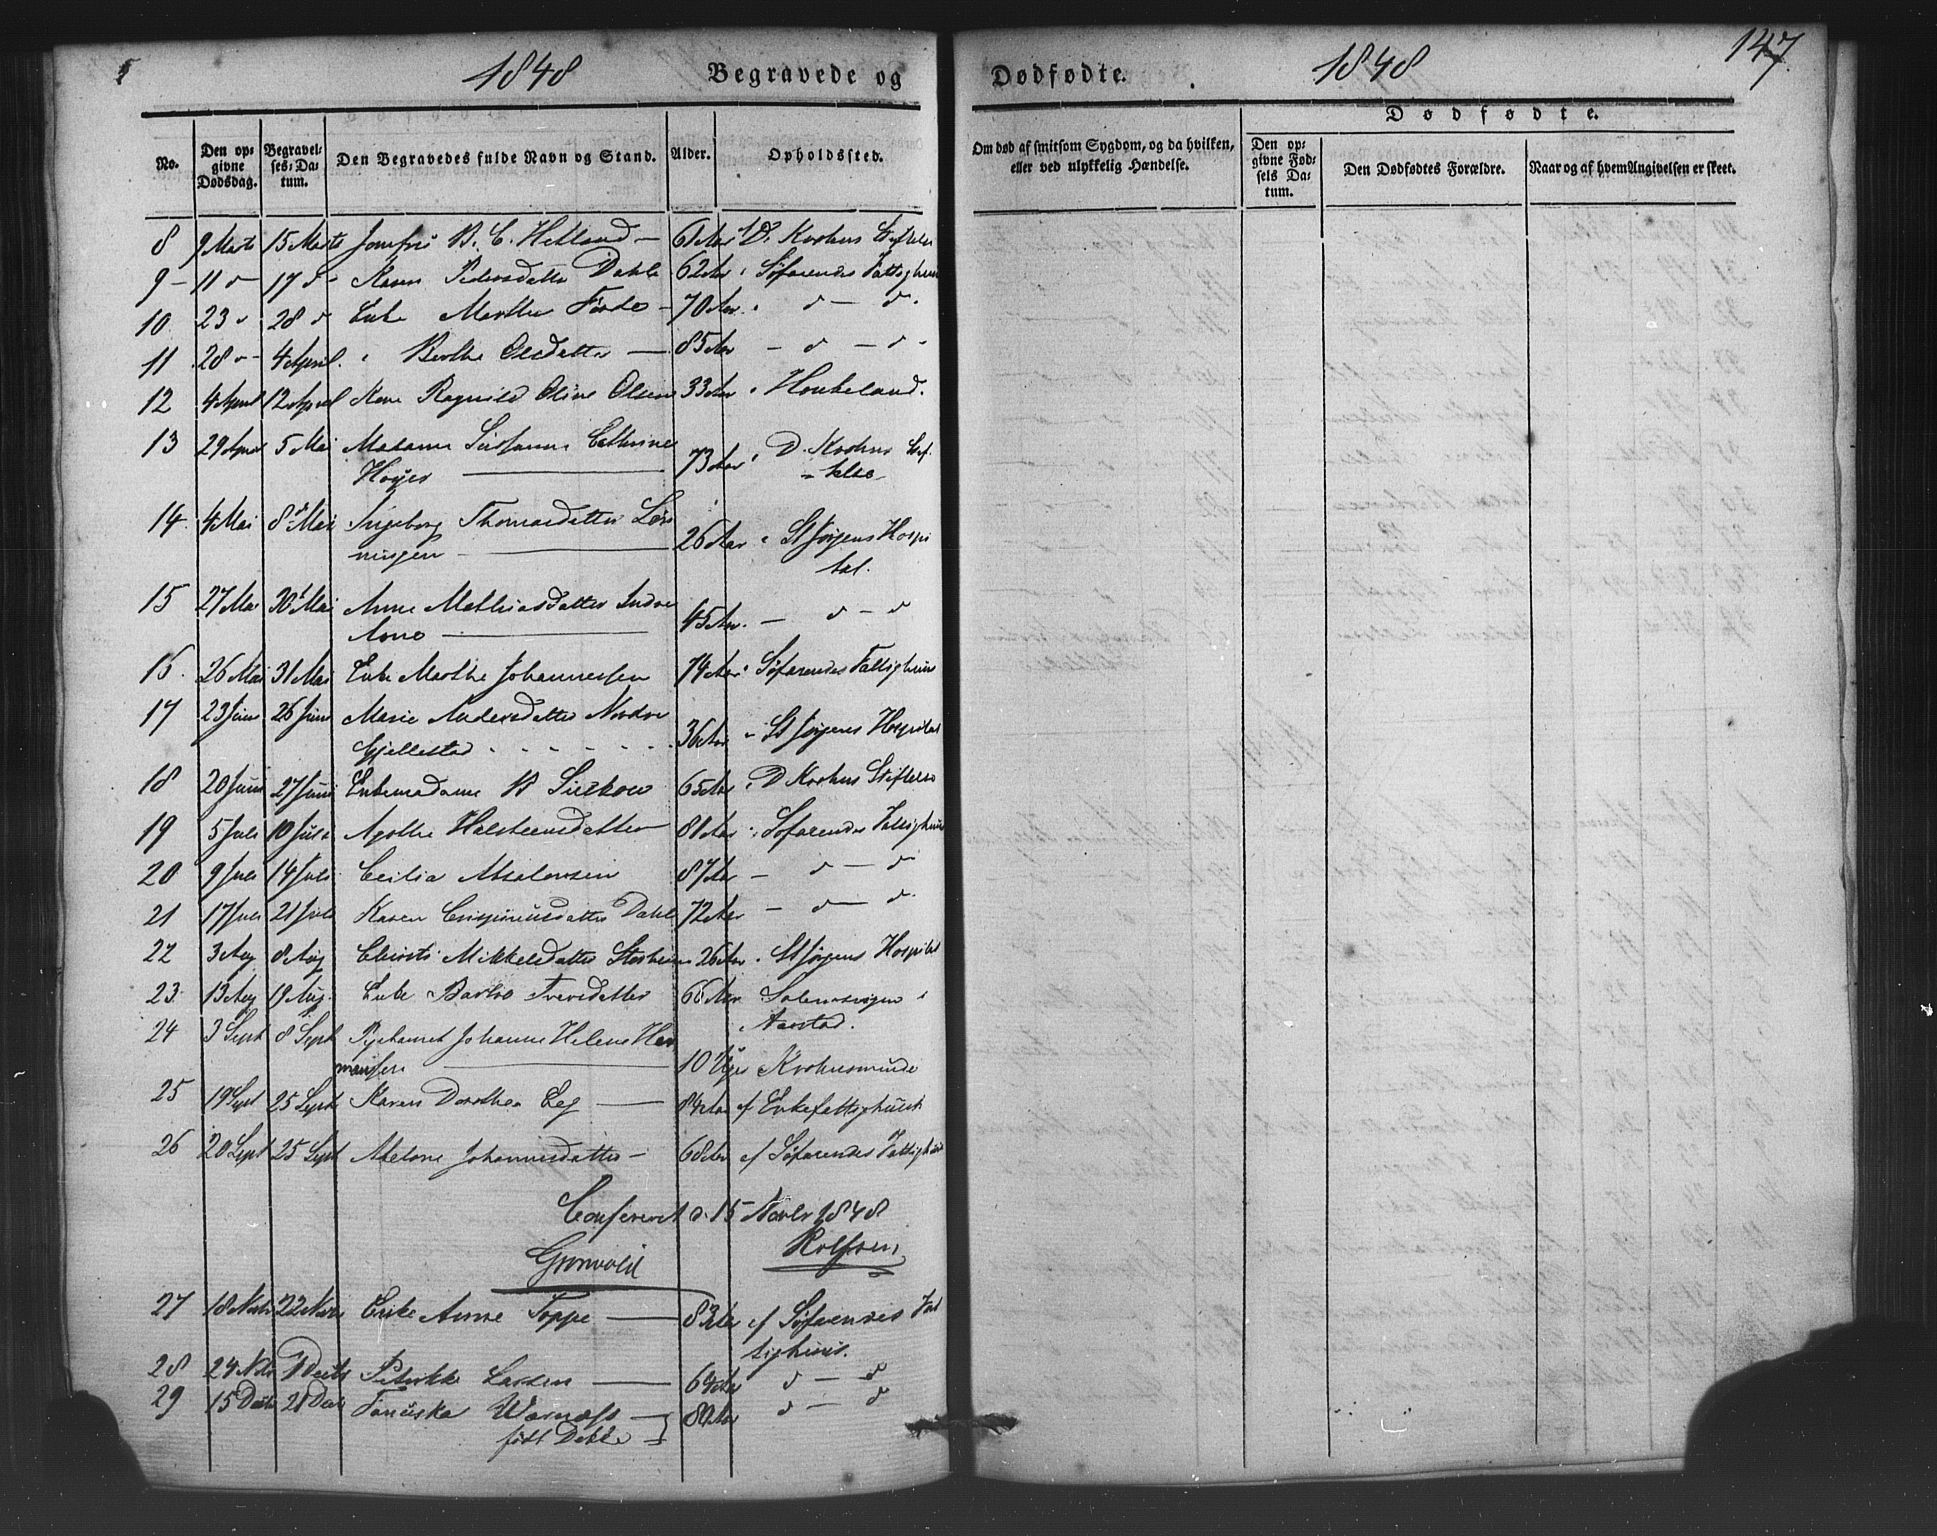 1848 Begravede og
No. Den opgivne Dødsdag. Begravelses-Datum. Den Begravedes fulde Navn og Stand. Alder. Opholdssted.
8 9 Marts 15 Marts Jomfru B. C. Hetland — 61 Aar D. Krohns Stiftelse
9 – 11 d 17 d Karen Pedersdatter Dahle 62 Aar " Søfarendes Fattighuus
10 23 d 28 d Enke Marthe Førde – 70 Aar " d — d
11 28 d 4 April " Berthe Olsdatter — 85 Aar — d — d
12 4 April 12 April Ragnild Oline Olsen 33 Aar " Houkeland.
13 29 April 5 Mai Madame Susanne Cathrine
Høyer — 73 Aar " D. Krohns Stif-
telse
14 4 Mai 8 Mai Ingeborg Thomasdatter
ningen — 26 Aar " St Jørgens Hospi
tal.
15 27 Mai 30 Mai Anne Mathiasdatter Indre
Arne — 45 Aar. — d — d
16 26 Mai 31 Mai Enke Marthe Johannessen 74 Aar " Søfarendes Fattighuus
17 23 Juni 26 Juni Marie Andersdatter Nordre
Gjellestad 36 Aar " St Jørgens Hospital
18 20 Juni 27 Juni Enkemadame B 65 Aar " D Krohns Stiftelse
19 5 Juli 10 Juli Agathe Halsteensdatter 81 Aar " Søfarendes Fattighuus
20 9 Juli 14 Juli Cecilia Absalonsen 87 Aar — d — d
21 17 Juli 21 Juli Karen Crispinusdatter Dahl 72 Aar — d — d
22 3 Aug 8 Aug Christi Mikkelsdatter 26 Aar " St Jørgens Hospital
23 13 Aug 19 Aug. Enke Iversdatter 68 Aar i
Aarstad.
24 3 Sept 8 Sept Pigebarnet Johanne Helene Her
mansen — 10 Uger Krohnsminde
25 19 Sept 25 Sept Karen Dorothea Eeg — 84 Aar af Enkefattighuset
26 20 Sept 25 Sept Abelone Johannesdatter — 68 Aar af Søfarendes Fattighuus
Confereret d. 15 Novbr 1848
Rolfsen
Grønvold
27 18 Novbr 22 Novbr Enke Anne Toppe — af Søfarendes Fat
tighuus.
28 24 Nvbr 1 Decbr Petrikke Larsen — 64 Aar d — d
29 15 Decbr 21 Decbr Warnæss — d — d
født Dekke
147.
Dødfødte. 1848
Om død af smitsom Sygdom, og da hvilken, eller ved ulykkelig Hændelse.
Dødfødte.
Den opgivne Fødsels Datum. Den Dødfødtes Forældre. Naar og af hvem Angivelsen er skeet.